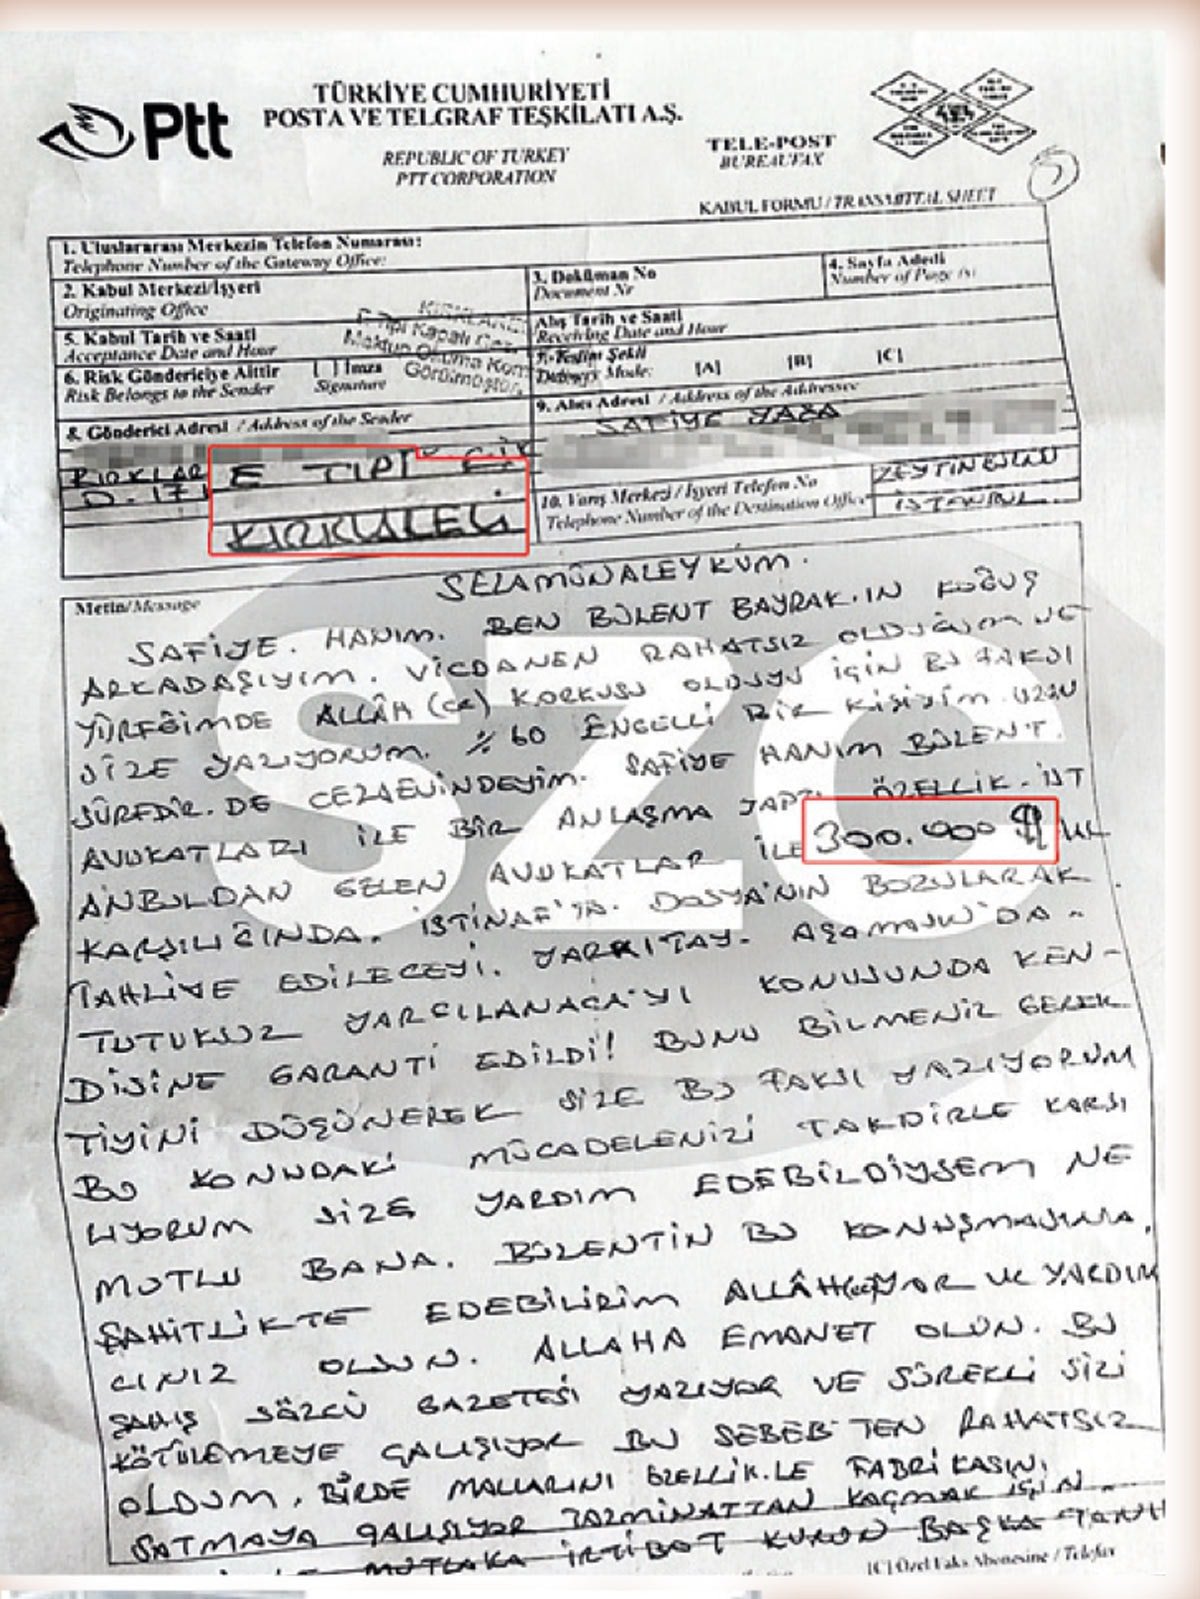 Ptt
TÜRKİYE CUMHURİYETİ
POSTA VE TELGRAF TEŞKİLATI A.Ş.
REPUBLIC OF TURKEY
PTT CORPORATION
TELE-POST
BUREAUFAX
KABUL FORMU / TRANSMITTAL SHEET
1. Uluslararası Merkezin Telefon Numarası:
Telephone Number of the Gateway Office:
2. Kabul Merkezi/İşyeri
Originating Office
3. Doküman No
Document Nr
4. Sayfa Adedi
Number of Page (s)
5. Kabul Tarih ve Saati
Acceptance Date and Hour
Alış Tarih ve Saati
Receiving Date and Hour
6. Risk Göndericiye Aittir
Risk Belongs to the Sender
[ ] İmza
Signature
7. Teslim Şekli
Delivery Mode:
[A] [B] [C]
KIRKLARELİ
E Tipi Kapalı Cez.
Mektup Okuma Kom
Görülmüştür.
8. Gönderici Adresi / Address of the Sender
9. Alıcı Adresi / Address of the Addressee
SAFİYE YAZA
KIRKLAR E TİPİ C.İK
D-171
KIRKLARELİ
10. Varış Merkezi / İşyeri Telefon No
Telephone Number of the Destination Office
ZEYTİNBURNU
İSTANBUL
Metin/Message
SELAMÜNALEYKUM.
SAFİYE. HANIM. BEN BÜLENT BAYRAK.IN KOĞUŞ
ARKADAŞIYIM. VİCDANEN RAHATSIZ OLDUĞUM VE
YÜREĞİMDE ALLÂH (CC) KORKUSU OLDUĞU İÇİN BU FAKSI
SİZE YAZIYORUM. %60 ENGELLİ BİR KİŞİYİM. UZUN
SÜREDİR. DE CEZAEVİNDEYİM. SAFİYE HANIM BÜLENT.
AVUKATLARI İLE BİR ANLAŞMA YAPTI ÖZELLİK. İST
ANBULDAN GELEN AVUKATLAR İLE 300.000 $
KARŞILIĞINDA. İSTİNAF'TA. DOSYA'NIN BOZULARAK.
TAHLİYE EDİLECEYİ. YARKITAY. AŞAMASIN'DA.
TUTUKSUZ YARGILANACA'YI KONUSUNDA KEN-
DİSİNE GARANTİ EDİLDİ! BUNU BİLMENİZ GEREK
TİYİNİ DÜŞÜNEREK SİZE BU FAKSI YAZIYORUM
BU KONUDAKİ MÜCADELENİZİ TAKDİRLE KARŞI
LIYORUM SİZE YARDIM EDEBİLDİYSEM NE
MUTLU BANA. BÜLENTİN BU KONUŞMASINA.
ŞAHİTLİKTE EDEBİLİRİM ALLÂH(CC)YAR VE YARDIM
CINIZ OLSUN. ALLAHA EMANET OLUN. BU
ŞAHIS SÖZCÜ GAZETESİ YAZIYOR VE SÜREKLİ SİZİ
KÖTÜLEMEYE ÇALIŞIYOR BU SEBEB'TEN RAHATSIZ
OLDUM. BİRDE MALLARINI ÖZELLİK.LE FABRİKASINI
SATMAYA ÇALIŞIYOR TAZMİNATTAN KAÇMAK İÇİN.
MUTLAKA İRTİBAT KURUN BAŞKA
[C] Özel Faks Abonesine / Telefax
SZC